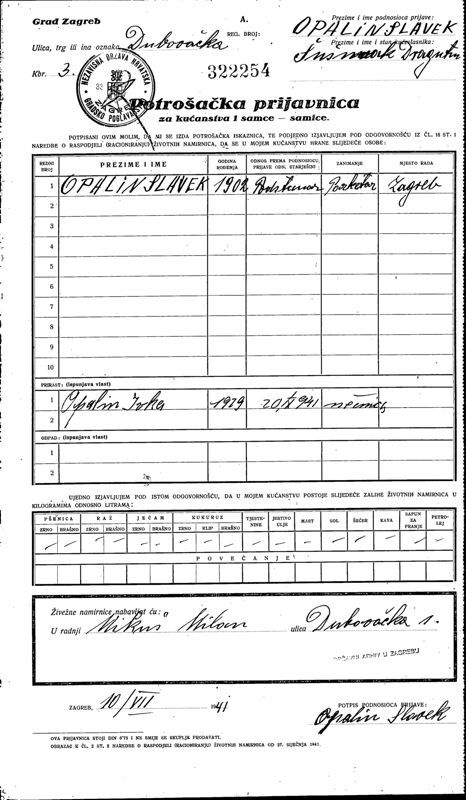 Grad Zagreb
A.
Prezime i ime podnosioca prijave:
REG. BROJ:
OPALIN SLAVEK
Ulica, trg ili ina oznaka Dubovačka
Prezime i ime stanodavca
Dragutin
Kbr. 3.
NEZAVISNA DRŽAVA HRVATSKA
GRADSKO POGLAVARSTVO
322254
Potrošačka prijavnica
za kućanstva i samce – samice.
POTPISANI OVIM MOLIM, DA MI SE IZDA POTROŠAČKA ISKAZNICA, TE PODJEDNO IZJAVLJUJEM POD ODGOVORNOŠĆU IZ ČL. 18 ST. 1
NAREDBE O RASPODJELI (RACIONIRANJU) ŽIVOTNIH NAMIRNICA, DA SE U MOJEM KUĆANSTVU HRANE SLIJEDEĆE OSOBE:
REDNI BROJ PREZIME I IME GODINA ROĐENJA ODNOS PREMA PODNOSIOCU PRIJAVE ODN. STARJEŠINI ZANIMANJE MJESTO RADA
1 OPALIN SLAVEK 1902 Zagreb
2
3
4
5
6
7
8
9
10
PRIRAST: (ispunjava vlast)
1 Opalin Ivka 1939
2
ODPAD: (ispunjava vlast)
1
2
UJEDNO IZJAVLJUJEM POD ISTOM ODGOVORNOŠĆU, DA U MOJEM KUĆANSTVU POSTOJE SLIJEDEĆE ZALIHE ŽIVOTNIH NAMIRNICA U
KILOGRAMIMA ODNOSNO LITRAMA:
PŠENICA RAŽ JEČAM KUKURUZ TJESTENINE JESTIVO ULJE MAST SOL ŠEĆER KAVA SAPUN ZA PRANJE PETROLEJ
ZRNO BRAŠNO ZRNO BRAŠNO ZRNO BRAŠNO ZRNO KLIP BRAŠNO
POVEĆANJE
Živežne namirnice nabavljat ću:
U radnji Mikus Milan ulica Dubovačka 1.
DRŽAVNI ARHIV U ZAGREBU
ZAGREB, 10/VII 1941
POTPIS PODNOSIOCA PRIJAVE:
Opalin Slavek
OVA PRIJAVNICA STOJI DIN 0'75 I NE SMIJE SE SKUPLJE PRODAVATI.
OBRAZAC K ČL. 2 ST. 2 NAREDBE O RASPODJELI (RACIONIRANJU) ŽIVOTNIH NAMIRNICA OD 27. SIJEČNJA 1941.